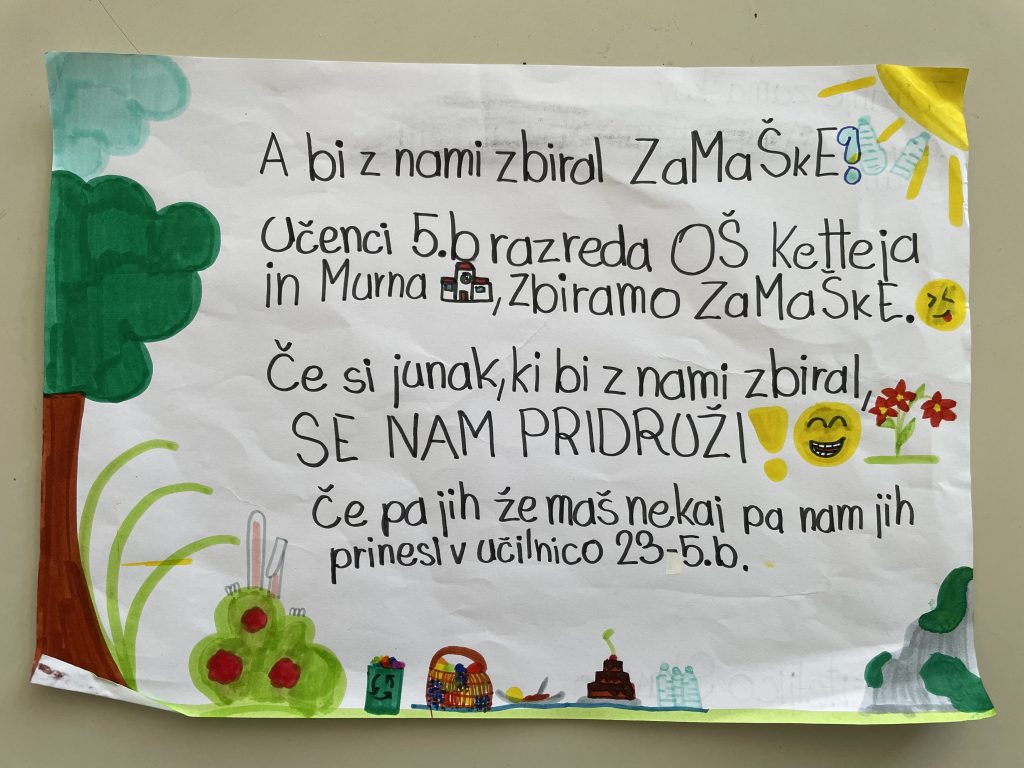 A bi z nami zbiral ZaMaŠkE?
Učenci 5.b razreda OŠ Ketteja
in Murna, zbiramo ZaMaŠkE.
Če si junak, ki bi z nami zbiral,
SE NAM PRIDRUŽI!
Če pa jih že maš nekaj pa nam jih
prinesi v učilnico 23-5.b.